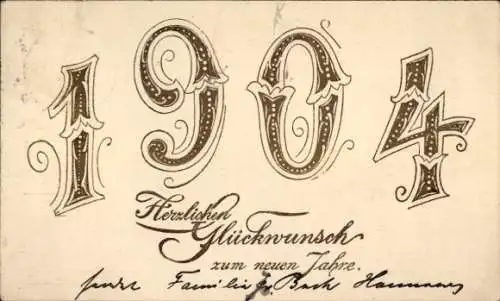 1904
Herzlichen
Glückwunsch
zum neuen Jahre.
sendet Familie Bach